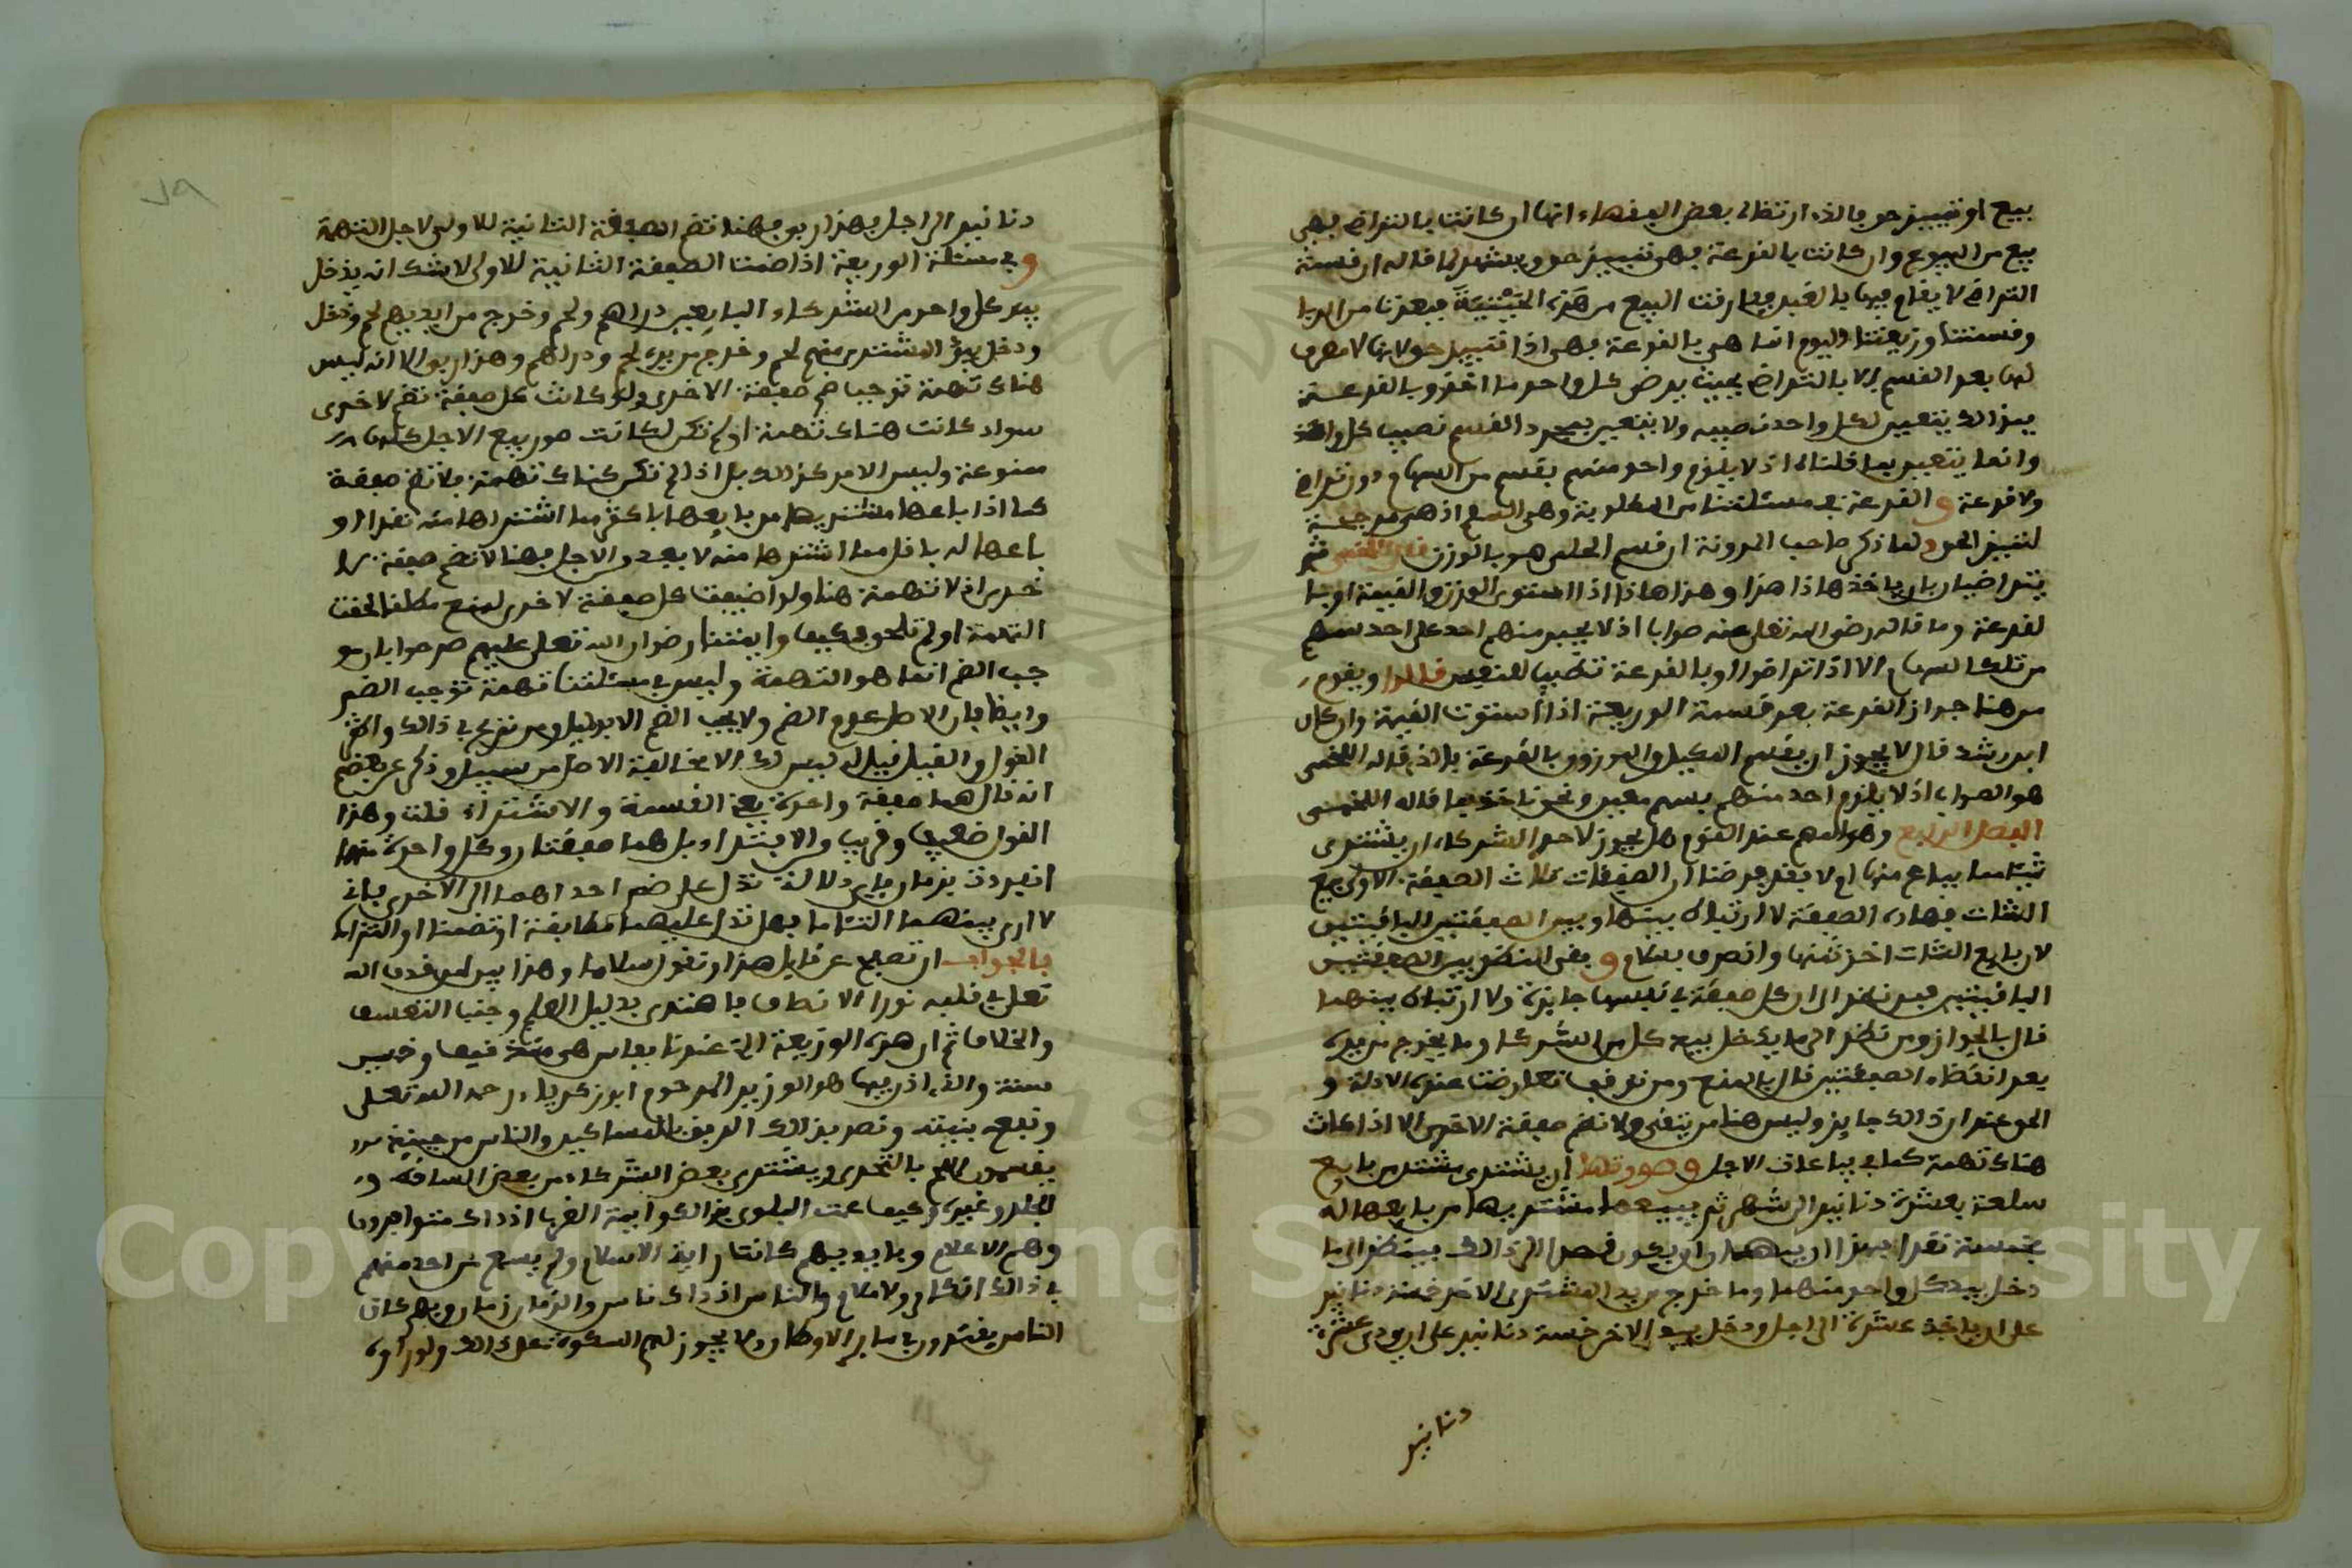 بيع او تمييز حق فالذي ارتضاه بعض الفقهاء انها ان كانت بالتراضي فهي
بيع من البيوع وان كانت بالقرعة فهي تمييز حق ويشهد لما قاله ان قسمة
التراضي لا يقام فيها بالغبن وفارقت البيع من هذه الحيثية فبعدنا من الربا
وقسمتنا وزيعتنا اليوم انما هي بالقرعة فهي اذا تمييز حق لانها لا مصرف
لها بعد القسم الا بالتراضي بحيث يرضى كل واحد ما اخذ وبالقرعة
فبذالك يتعين لكل واحد نصيبه ولا يتعين بمجرد القسم نصيب كل واحد
وانما يتعين بما قلناه اذ لا يلزم واحد منهم بقسم من السهام دون تراضي
ولا قرعة و القرعة في مسئلتنا من المطلوبة وهي السهم اذ هي موجبة
لتمييز الحق ولما ذكر صاحب المدونة ان قسم اللحم هو بالوزن قال اللخمي ثم
يتراضيان بان ياخذ هاذا هذا وهذا هاذا اذا استوى الوزن والقيمة او بـا
لقرعة وما قاله رضي الله تعلى عنه صوابا اذ لا يجبر منهم احد على احد سهم
من تلك السهام الا اذا تراضوا او بالقرعة تطييبا لانفسهم قالوا ويقوم
من هنا جواز القرعة بعد قسمة الوزيعة اذا استوت القيمة وان كان
ابن رشد قال لا يجوز ان يقسم المكيل والموزون بالقرعة فالذي قاله اللخمي
هو الصواب اذ لا يلزم احد منهم بسهم معين ونحن ناخذ بما قاله اللخمي
الفصل الرابع وهو المهم عند القوم هل يجوز لاحد الشركاء ان يشتري
شيئا مما يباع منها ام لا فقد عرضنا ان الصفقات ثلاث الصفقة الاولى بيع
الشات فهاذه الصفقة لا ارتباط بينها وبين الصفقتين الباقيتين
لان بايع الشات اخذ ثمنها وانصرف بسلام و بقي النظر بين الصفقتين
الباقيتين فمن نظر الى ان كل صفقة في نفسها جايزة ولا ارتباط بينهما
قال بالجواز ومن نظر الى ما يدخل بيد كل من الشركاء وما يخرج من يده
بعد انقضاء الصفقتين قال بالمنع ومن توقف تعارضت عنده الادلة و
الحق عندي ان ذالك جايز وليس هنا من يتقي ولا تضم صفقة الاخرى الا اذا كانت
هناك تهمة كما في بياعات الاجل وصورتها ان يشتري مشتر من بايع
سلعة بعشرة دنانير الى شهر ثم يبيعها مشتريها من بايعها له
بخمسة نقدا فهذا ان يبيعها وان يكون قصد الى ذالك فينظر الى ما
دخل بيد كل واحد منهما وما خرج من يد المشتري الاخر خمسة دنانير
على ان ياخذ عشرة الى اجل ودخل بيد الاخر خمسة دنانير على ان يودي عشرة
دنانير
دنانير الى اجل فهذا ربو فهنا تضم الصفقة الثانية للاولى لاجل التهمة
و في مسئلة الوزيعة اذا ضمت الصفقة الثانية للاولى لا شك انه يدخل
بيد كل واحد من الشركاء البايعين دراهم ولحم وخرج من ايديهم لحم ودخل
ودخل بيد المشتري منهم لحم وخرج من يده لحم ودراهم وهذا ربو الا انه ليس
هناك تهمة توجب ضم صفقة الاخرى ولو كانت كل صفقة تضم لاخرى
سواء كانت هناك تهمة او لم تكن لكانت صور بيع الاجل كلها
ممنوعة وليس الامر كذالك بل اذا لم تكن هناك تهمة فلا تضم صفقة
كما اذا باعها مشتريها من بايعها باكثر مما اشتراها منه نقدا او
باعها له باقل مما اشتراها منه لا بعد من الاجل فهنا لا تضم صفقة لا
خرى اذ لا تهمة هنا ولو اضيفت كل صفقة لاخرى لمنع مطلقا لحقت
التهمة او لم تلحق كيف وايمتنا رضوان الله تعلى عليهم صرحوا بان مو
جب الضم انما هو التهمة وليس في مسئلتنا تهمة توجب الضم
وايضا فان الاصل عدم الضم ولا يجب الضم الا بدليل ومن نزع في ذالك واكثر
القول والقيل قيل له ليس لك الا مخالفة الاصل من سبيل وذكر عن بعضهم
انه قال هما صفقة واحدة يعني القسمة والاشتراء قلت وهذا
القول ضعيف وقريب والاشتراء بل هما صفقتان وكل واحدة منهما
انفردت بزمان فاي دلالة تدل على ضم احداهما الى الاخرى فاني
لا ارى بينهما التئاما فهل تدل عليهما مطابقة او تضمنا او التزاما
فالجواب ان تصفح عن قايل هذا وتقول سلاما وهذا بين لمن قذف الله
تعلى في قلبه نورا الانصاف فاهتدى بدليل العلم وجنب التعسف
والخلاف ثم ان هذه الوزيعة التي عندنا بفاس هي منذ نيف وخمسين
سنة والذي اذن فيها هو الوزير المرحوم ابو زكرياء رحمه الله تعلى
ونفعه بنيته وقصد بذالك الرفق بالمساكين والناس من حينئذ
يقسمون اللحم بالتحري ويشتري بعض الشركاء من بعض الساقط و
الجلد وغيره وكيف عمت البلوى بذالك وايمة الغرب اذ ذاك متوافرون
وهم الاعلام وبايديهم كانت راية الاسلام ولم يسمع من احد منهم
في ذالك انكار ولا كلام والناس اذ ذاك ناس والزمان زمان وبهم كان
الناس يقتدون في ساير الاوطان ولا يجوز لهم السكوت على ذالك ولو راوه